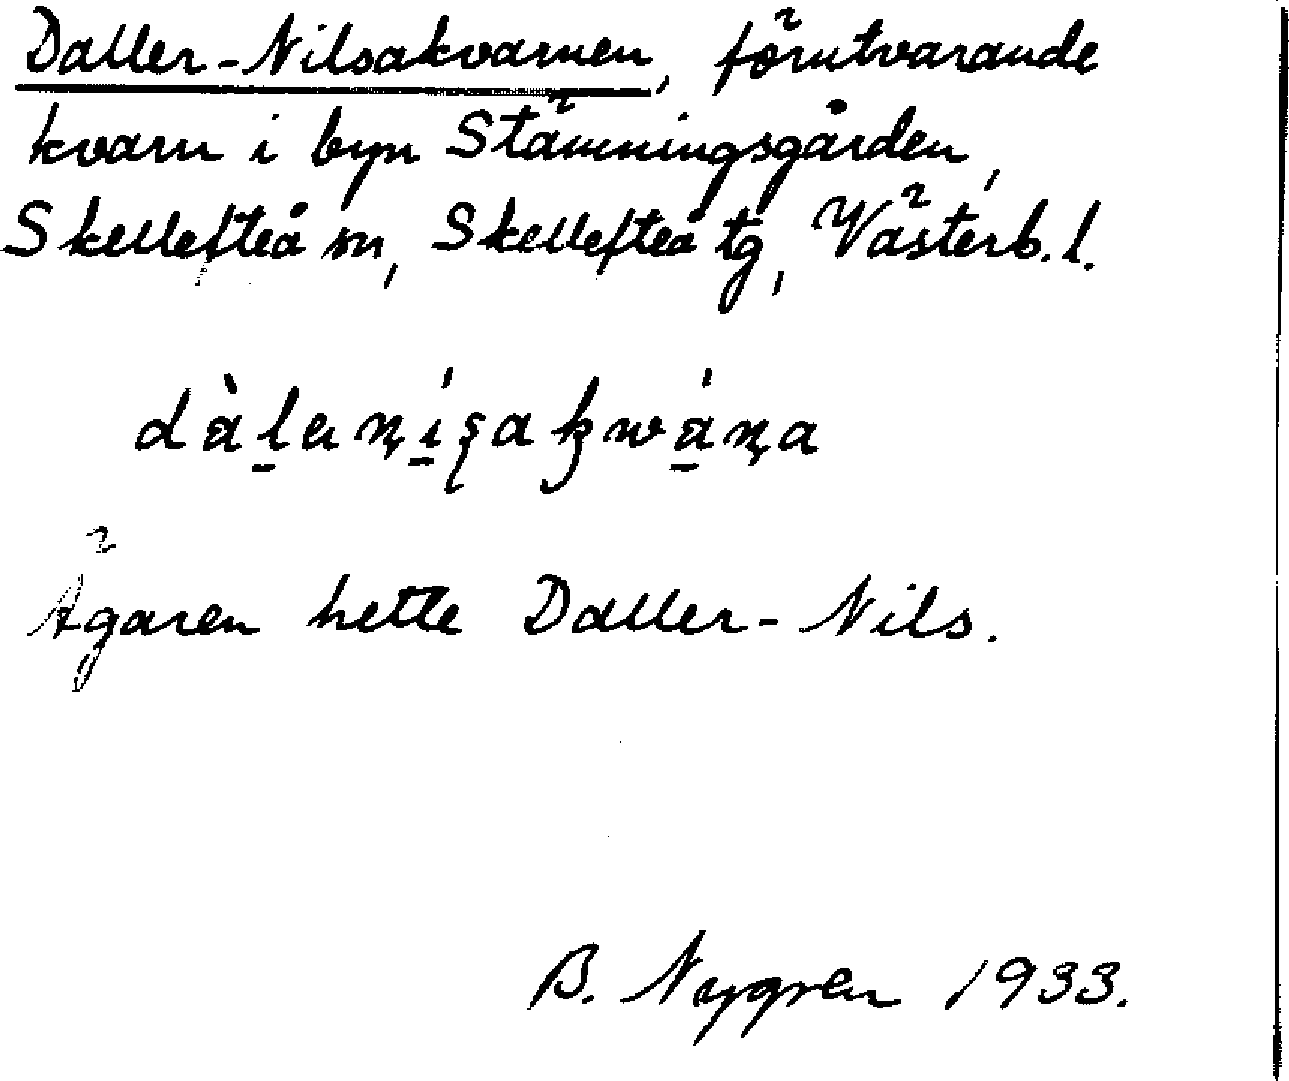 Daller-Nilsakvarnen, förutvarande
kvarn i byn Stämningsgården,
Skellefteå sn, Skellefteå tg, Västerb. l.
Ägaren hette Daller-Nils.
B. Nygren 1933.